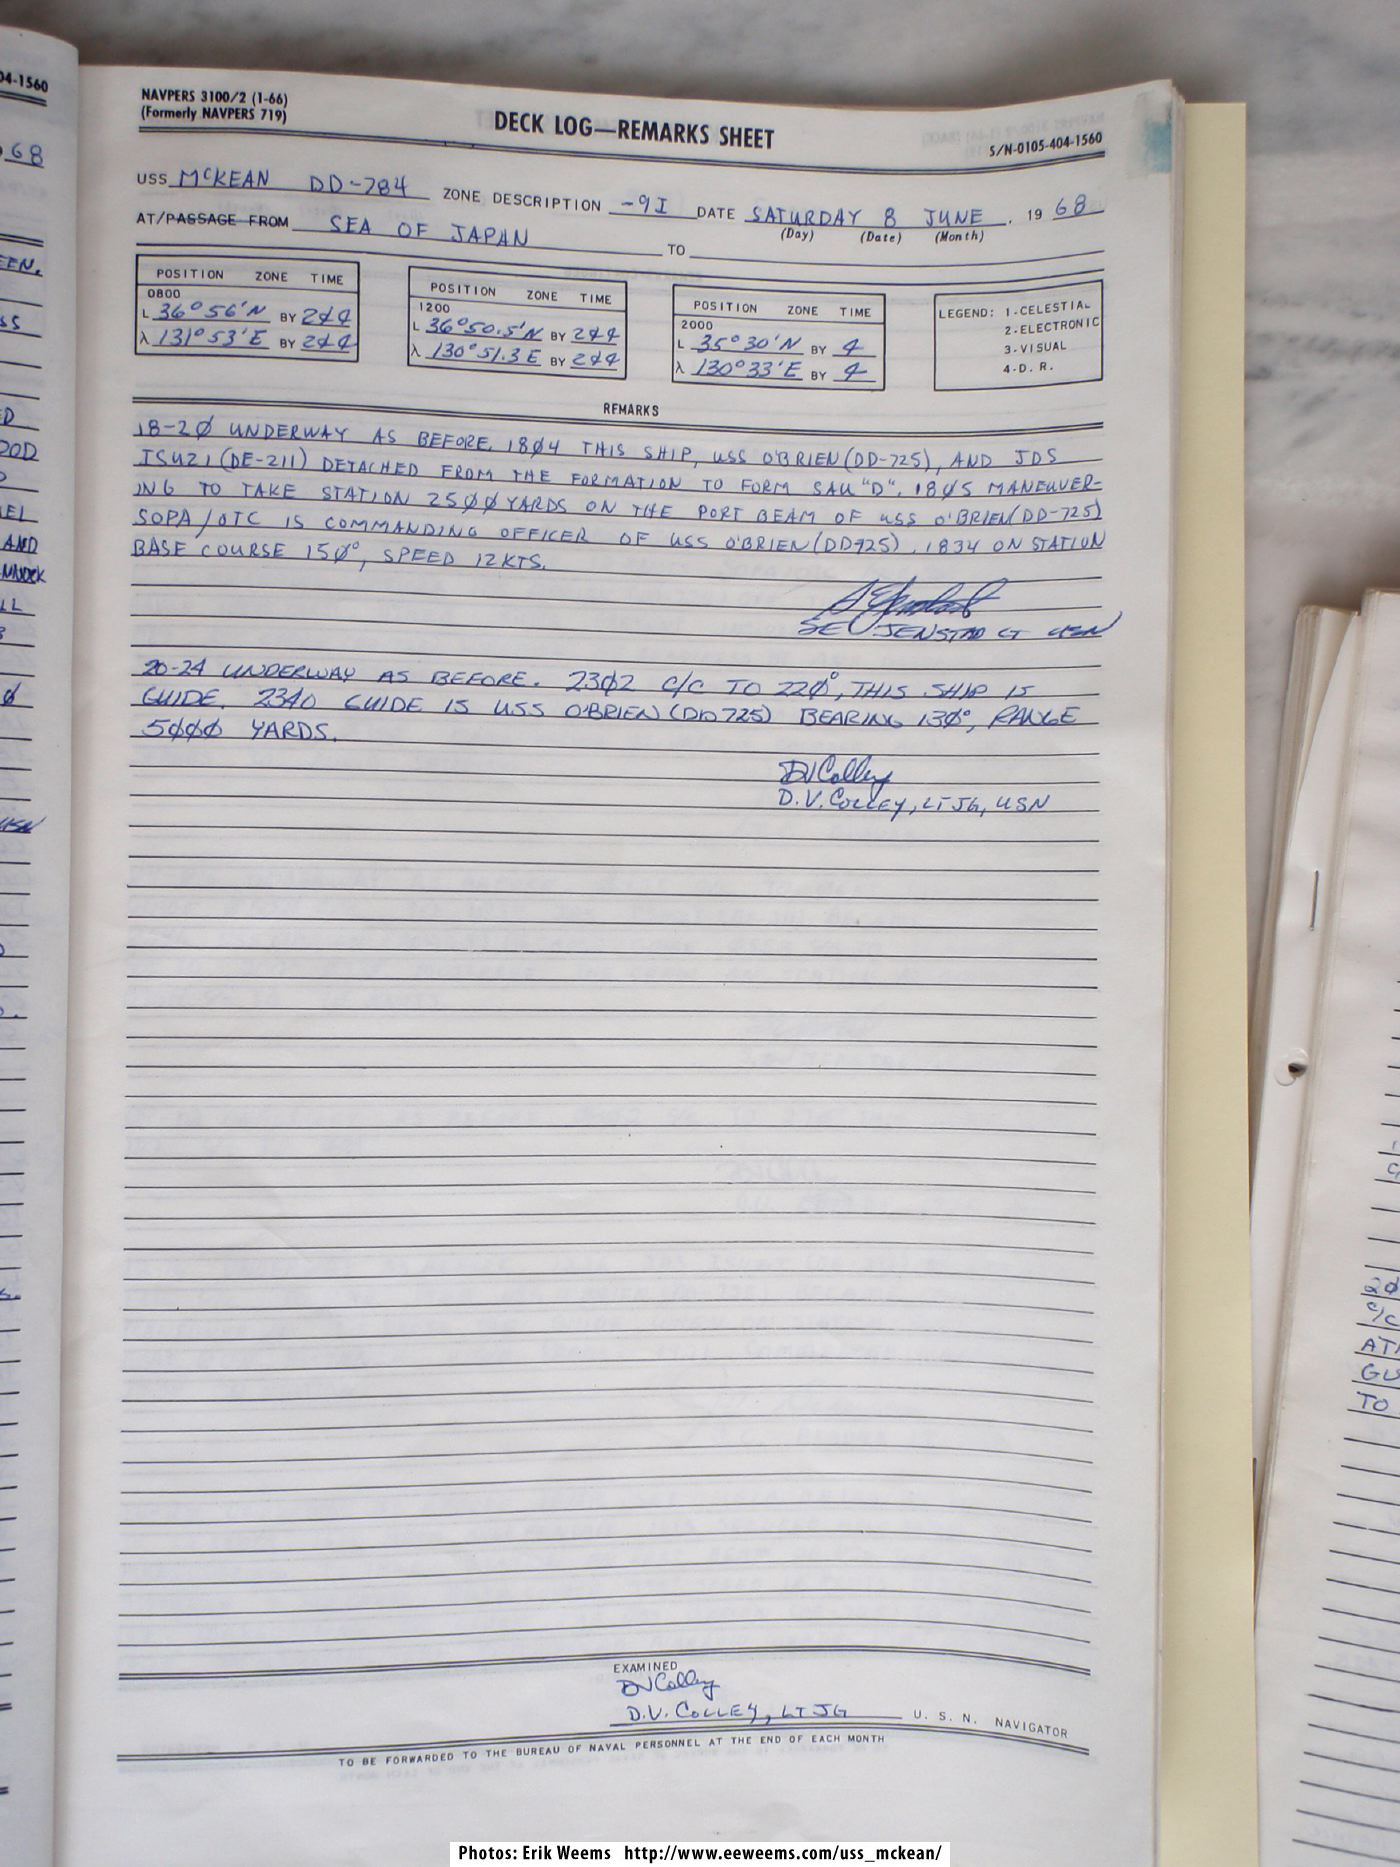 04-1560
68
EEN.
SS
D
OOD
EL
AND
NNOCK
LL
USN
NAVPERS 3100/2 (1-66)
(Formerly NAVPERS 719)
DECK LOG—REMARKS SHEET
S/N-0105-404-1560
USS McKEAN DD-784 ZONE DESCRIPTION -9I DATE SATURDAY 8 JUNE, 19 68
(Day) (Date) (Month)
AT/PASSAGE FROM SEA OF JAPAN TO
POSITION ZONE TIME
0800
L 36° 56'N BY 2&4
λ 131° 53'E BY 2&4
POSITION ZONE TIME
1200
L 36° 50.5'N BY 2&4
λ 130° 51.3 E BY 2&4
POSITION ZONE TIME
2000
L 35° 30'N BY 4
λ 130° 33'E BY 4
LEGEND: 1-CELESTIAL
2-ELECTRONIC
3-VISUAL
4-D. R.
REMARKS
18-2Ø UNDERWAY AS BEFORE. 18Ø4 THIS SHIP, USS O'BRIEN (DD-725), AND JDS
ISUZI (DE-211) DETACHED FROM THE FORMATION TO FORM SAU "D". 18Ø5 MANEUVER-
ING TO TAKE STATION 25ØØ YARDS ON THE PORT BEAM OF USS O'BRIEN (DD-725)
SOPA/OTC IS COMMANDING OFFICER OF USS O'BRIEN (DD725). 1834 ON STATION
BASE COURSE 15Ø°, SPEED 12 KTS.
SE JENSTAD LT USN
20-24 UNDERWAY AS BEFORE. 23Ø2 C/C TO 22Ø°, THIS SHIP IS
GUIDE. 234Ø GUIDE IS USS O'BRIEN (DD725) BEARING 13Ø°, RANGE
5ØØØ YARDS.
DV Colley
D.V. COLLEY, LTJG, USN
EXAMINED
DV Colley
D.V. COLLEY, LTJG U. S. N. NAVIGATOR
TO BE FORWARDED TO THE BUREAU OF NAVAL PERSONNEL AT THE END OF EACH MONTH
2Ø
C/C
AT
GU
TO
Photos: Erik Weems http://www.eeweems.com/uss_mckean/